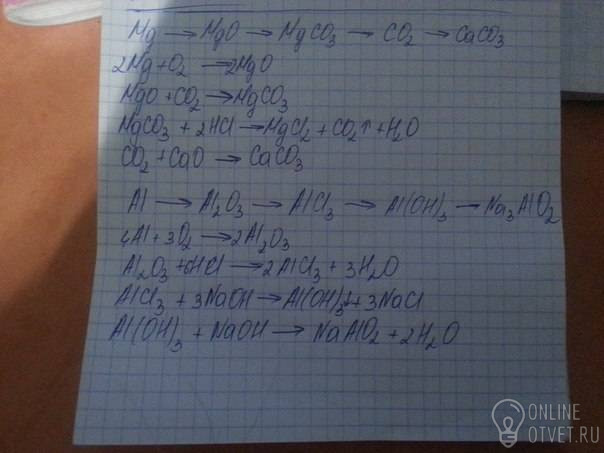 Mg → MgO → MgCO3 → CO2 → CaCO3
2Mg + O2 → 2MgO
MgO + CO2 → MgCO3
MgCO3 + 2HCl → MgCl2 + CO2↑ + H2O
CO2 + CaO → CaCO3
Al → Al2O3 → AlCl3 → Al(OH)3 — Na3AlO2
4Al + 3O2 → 2Al2O3
Al2O3 + 6HCl → 2AlCl3 + 3H2O
AlCl3 + 3NaOH → Al(OH)3↓ + 3NaCl
Al(OH)3 + NaOH → NaAlO2 + 2H2O
ONLINE
OTVET.RU